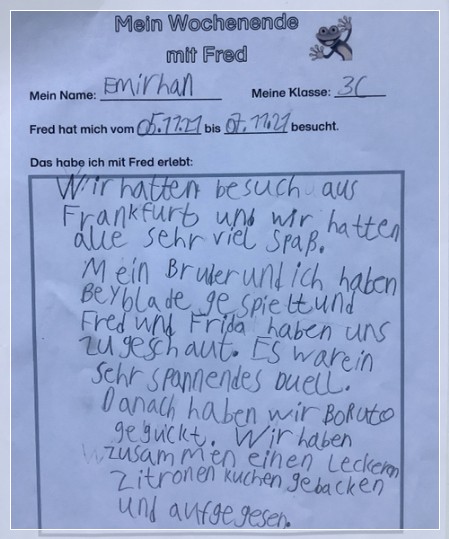 Mein Wochenende
mit Fred
Mein Name: Emirhan Meine Klasse: 3C
Fred hat mich vom 05.11.21 bis 07.11.21 besucht.
Das habe ich mit Fred erlebt:
Wir hatten besuch aus
Frankfurt und wir hatten
alle sehr viel Spaß.
Mein Bruder und ich haben
Beyblade gespielt und
Fred und Frida haben uns
zugeschaut. Es war ein
sehr spannendes Duell.
Danach haben wir BORUTO
geguckt. Wir haben
zusammen einen Leckeren
Zitronen kuchen gebacken
und aufgegesen.